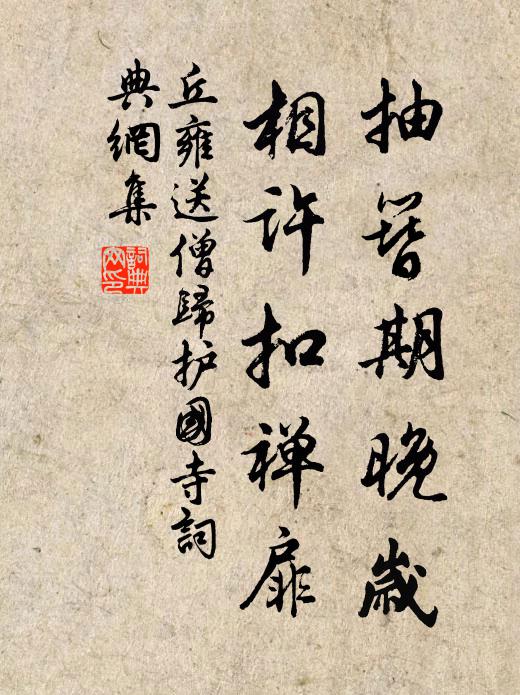 抽簪期晚歲
相許扣禅扉
丘雍送僧歸护國寺詞
典網集
詞典
网印